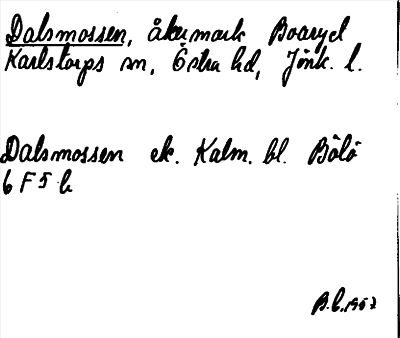 Dalsmossen, åkermark Boaryd
Karlstorps sn, Östra hd, Jönk. l.
Dalsmossen ek. Kalm. bl. Bölö
6 F 5 b